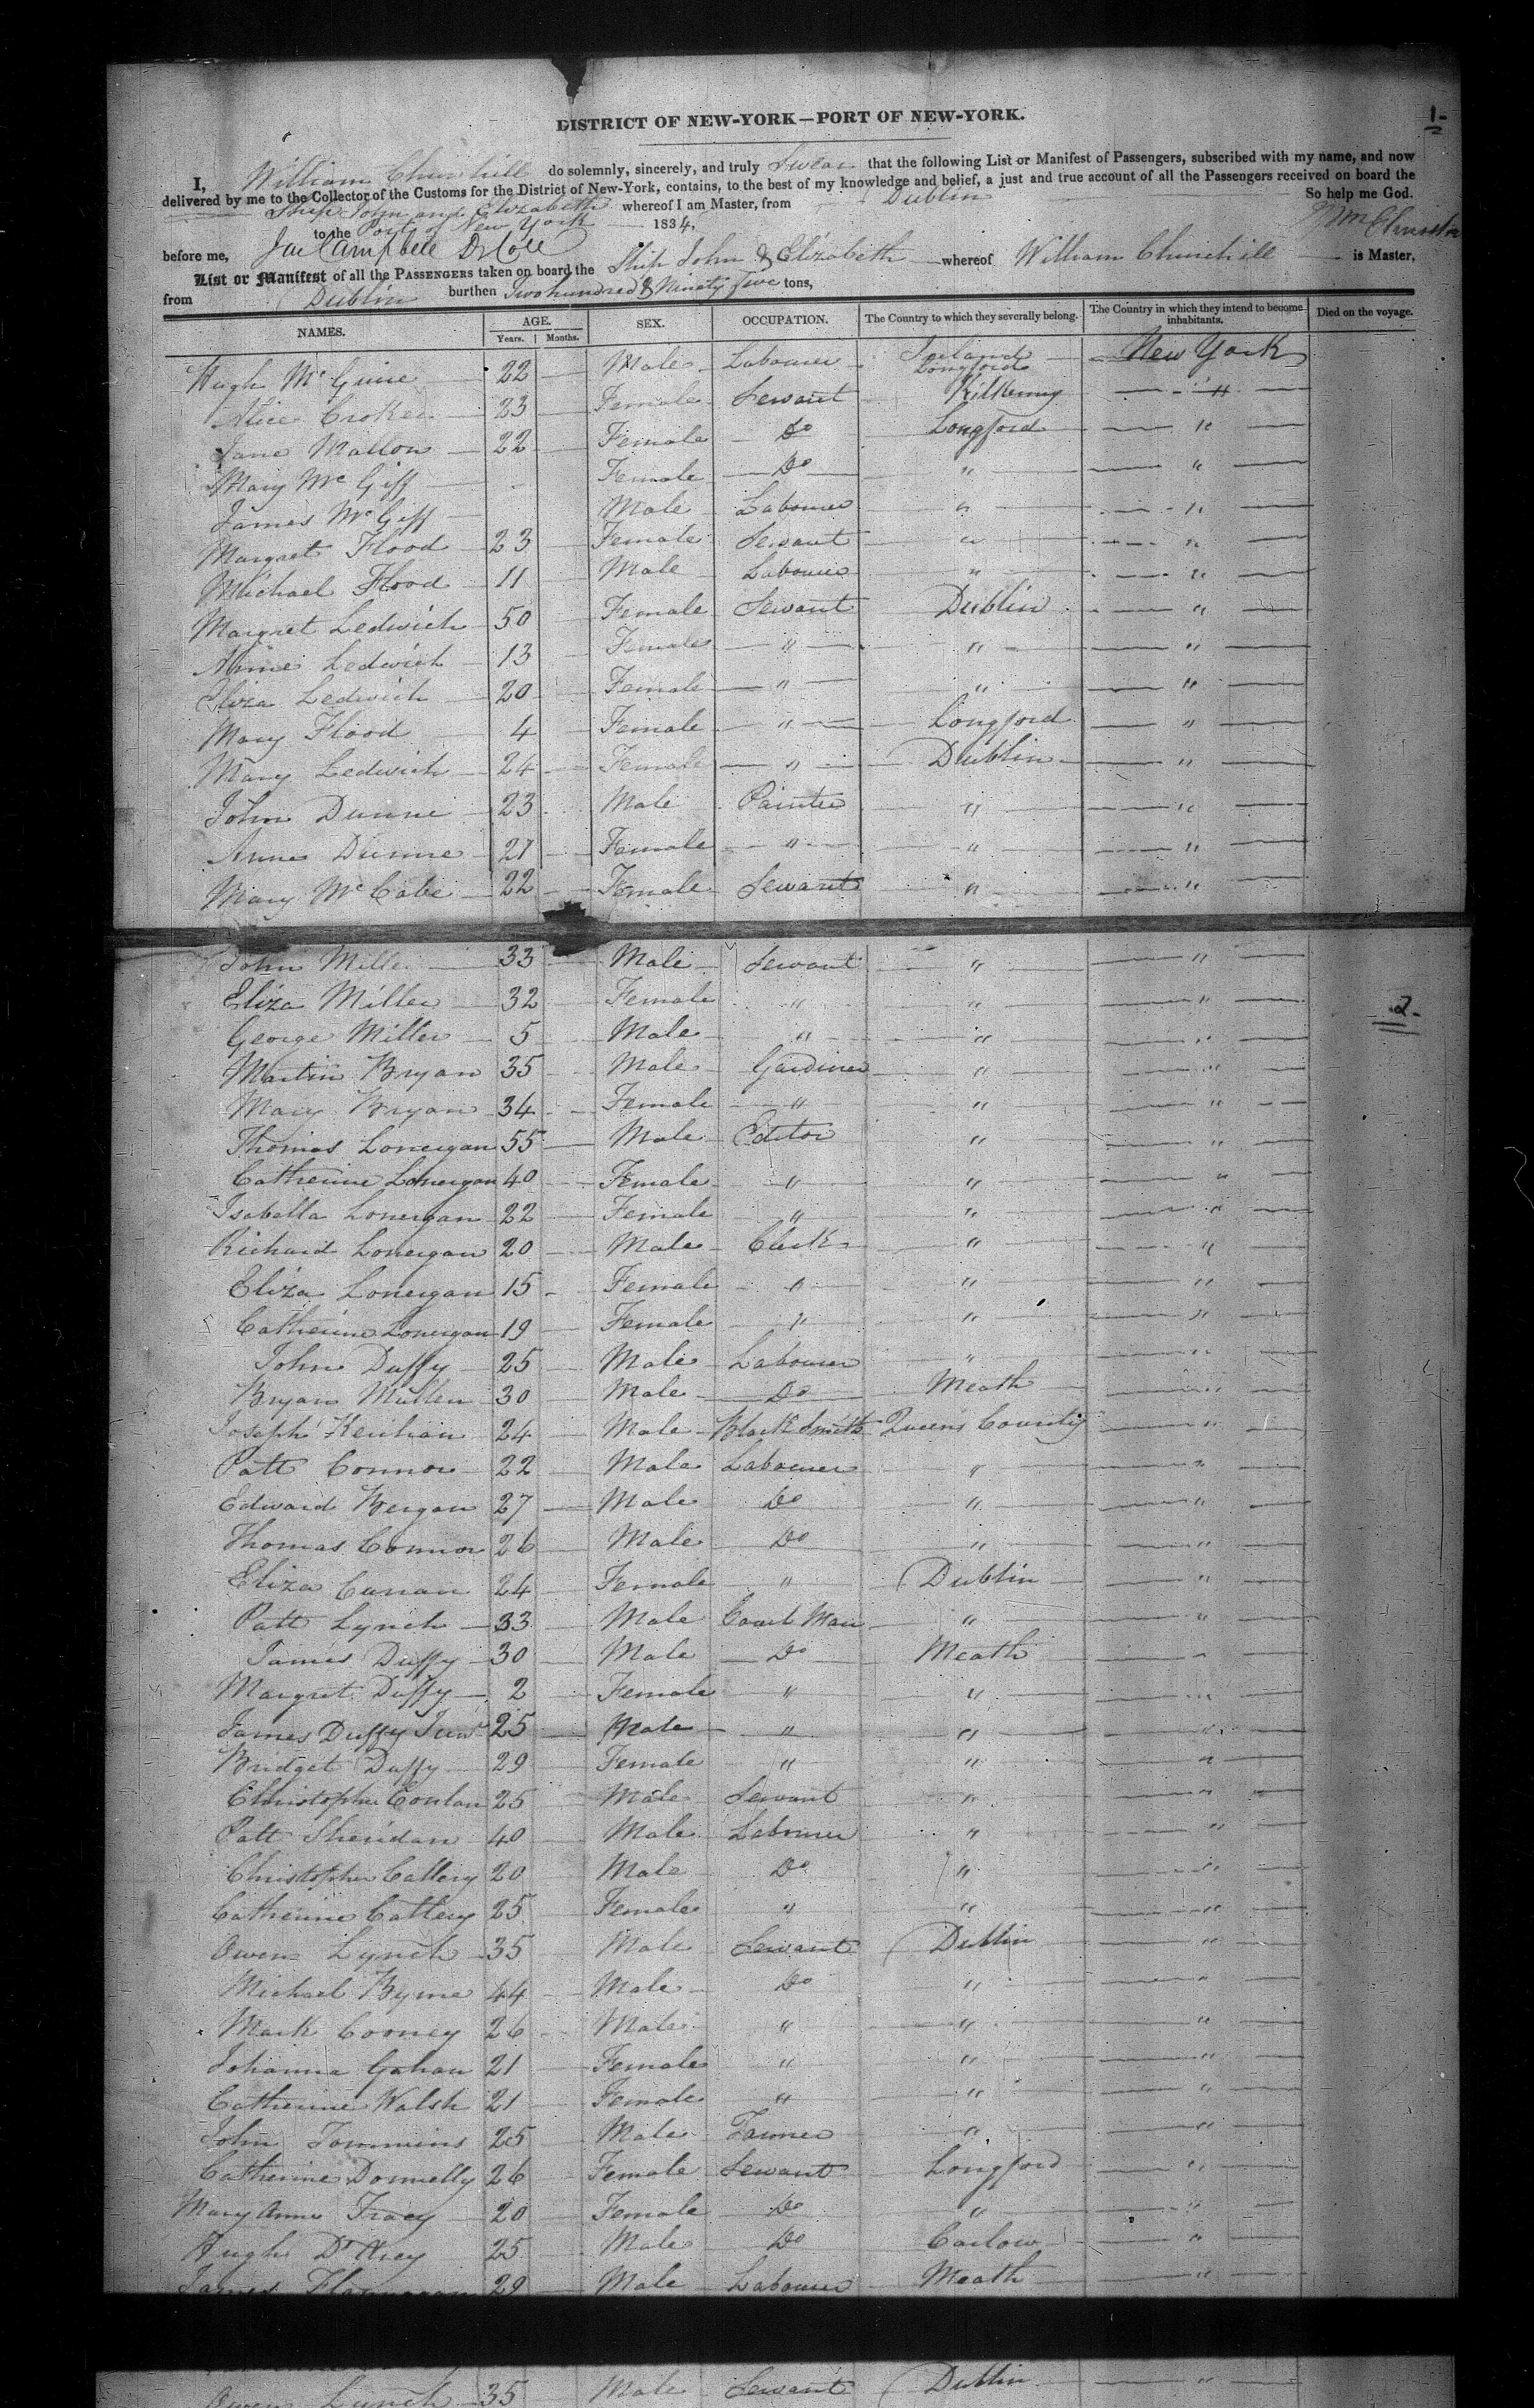 DISTRICT OF NEW-YORK—PORT OF NEW-YORK.
1-
I, William Churchill do solemnly, sincerely, and truly Swear that the following List or Manifest of Passengers, subscribed with my name, and now
delivered by me to the Collector of the Customs for the District of New-York, contains, to the best of my knowledge and belief, a just and true account of all the Passengers received on board the
Ship John and Elizabeth whereof I am Master, from Dublin So help me God.
to the Port of New York 1834. Wm Churchill
before me, Campbell
List or Manifest of all the PASSENGERS taken on board the Ship John & Elizabeth whereof William Churchill is Master,
from Dublin burthen Two hundred & Ninety five tons,
NAMES. AGE. SEX. OCCUPATION. The Country to which they severally belong. The Country in which they intend to become inhabitants. Died on the voyage.
Years. Months.
Hugh McGuire 22 Male Labourer Ireland Longford New York
Alice Croker 23 Female Servant Kilkenny "
Jane Mallon 22 Female Do Longford "
Mary McGiff Female Do " "
James McGiff Male Labourer " "
Margret Flood 23 Female Servant " "
Michael Flood 11 Male Labourer " "
Margret Ledwich 50 Female Servant Dublin "
Anne Ledwich 13 Female " " "
Eliza Ledwich 20 Female " " "
Mary Flood 4 Female " Longford "
Mary Ledwich 24 Female " Dublin "
John Dunne 23 Male Painter " "
Anne Dunne 27 Female " " "
Mary McCabe 22 Female Servant " "
John Miller 33 Male Servant " "
Eliza Miller 32 Female " " "
2-
George Miller 5 Male " " "
Martin Bryan 35 Male Gardiner " "
Mary Bryan 34 Female " " "
Thomas Lonergan 55 Male Editor " "
Catherine Lonergan 40 Female " " "
Isabella Lonergan 22 Female " " "
Richard Lonergan 20 Male Clerk " "
Eliza Lonergan 15 Female " " "
Catherine Lonergan 19 Female " " "
John Duffy 25 Male Labourer " "
Bryan Mullen 30 Male Do Meath "
Joseph Kenihan 24 Male Black Smith Queens County "
Patt Connor 22 Male Labourer " "
Edward Bergan 27 Male Do " "
Thomas Connor 26 Male Do " "
Eliza Curran 24 Female " Dublin "
Patt Lynch 33 Male Court Man " "
James Duffy 30 Male Do Meath "
Margret Duffy 2 Female " " "
James Duffy Junr 25 Male " " "
Bridget Duffy 29 Female " " "
Christopher Conlan 25 Male Servant " "
Patt Sheridan 40 Male Labourer " "
Christopher Callery 20 Male Do " "
Catherine Callery 25 Female " " "
Owen Lynch 35 Male Servant Dublin "
Michael Byrne 44 Male Do " "
Mark Cooney 26 Male " " "
Johanna Gahan 21 Female " " "
Catherine Walsh 21 Female " " "
John Tommins 25 Male Farmer " "
Catherine Donnelly 26 Female Servant Longford "
Mary Anne Tracy 20 Female Do " "
Hugh D'Arcy 25 Male Do Carlow "
James Flannagan 29 Male Labourer Meath "
Owen Lynch 35 Male Servant Dublin "